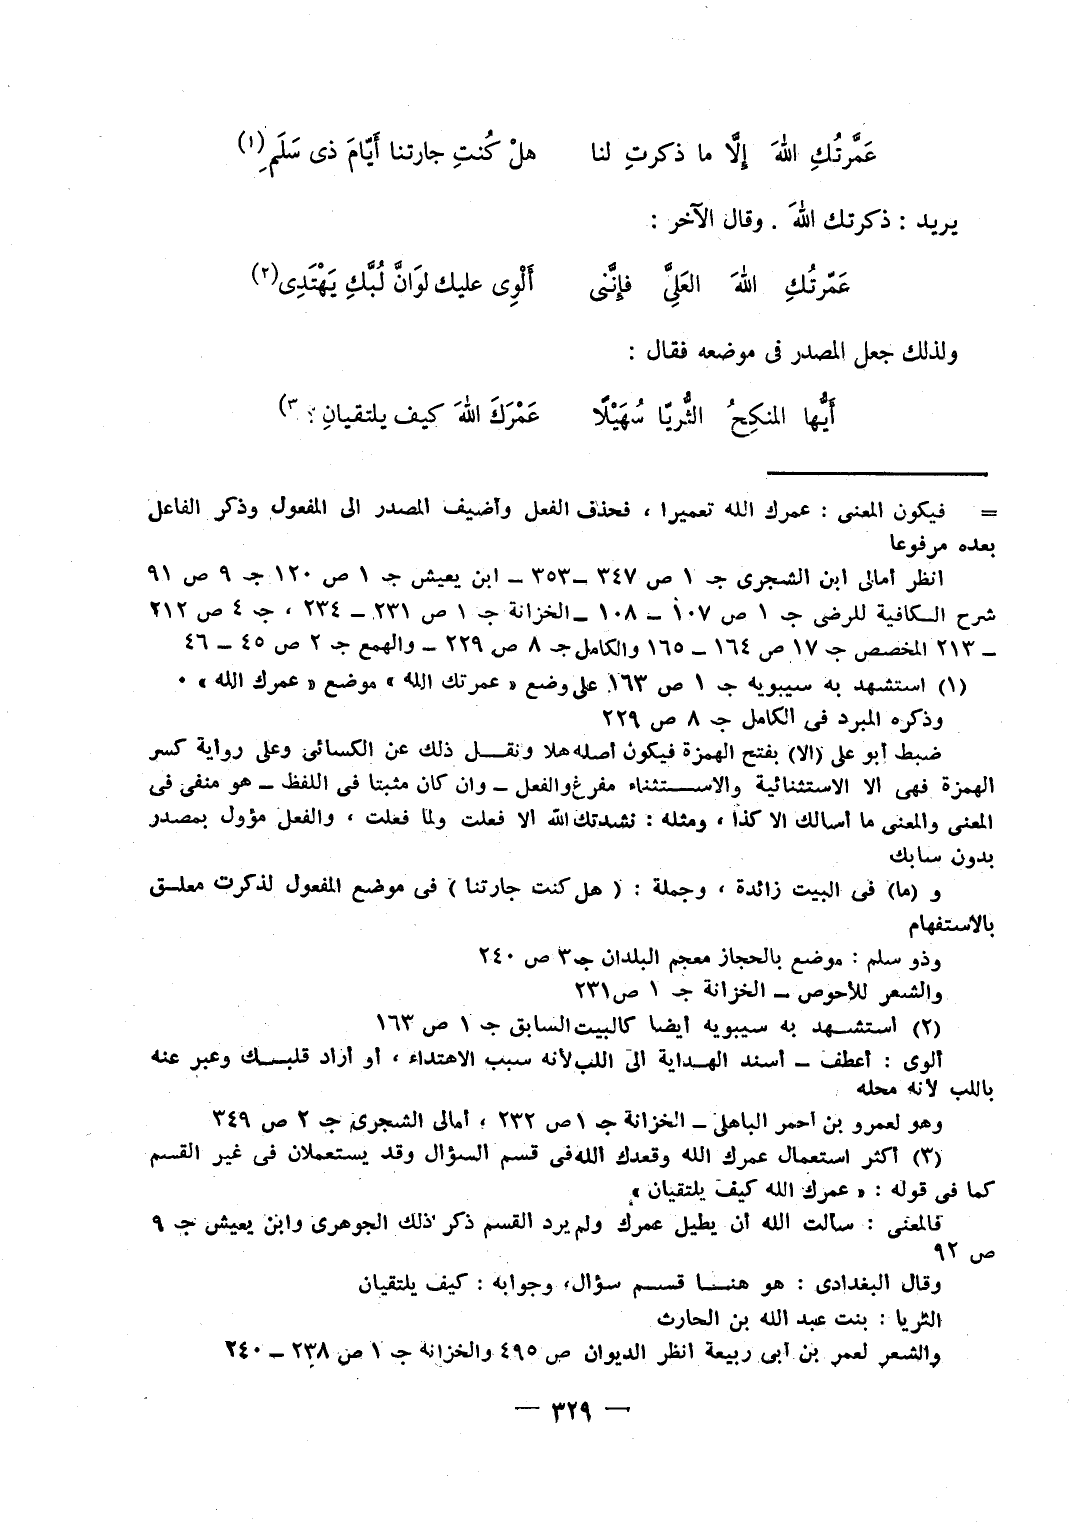 عَمَّرتُكِ اللهَ إلَّا ما ذكرتِ لنا هلْ كُنتِ جارتنا أَيّامَ ذى سَلَمِ(١)
يريد : ذكرتك اللهَ . وقال الآخر :
عَمّرتُكِ اللهَ العَلِيَّ فإنَّنى أَلْوِى عليك لوَانَّ لُبَّكِ يَهْتَدِى(٢)
ولذلك جعل المصدر فى موضعه فقال :
أَيُّها المنكِحُ الثُّريّا سُهَيْلًا عَمْرَكَ اللهَ كيف يلتقيانِ ؟ ٣)
= فيكون المعنى : عمرك الله تعميرا ، فحذف الفعل وأضيف المصدر الى المفعول وذكر الفاعل
بعده مرفوعا
انظر أمالى ابن الشجرى جـ ١ ص ٣٤٧ ــ٣٥٣ ــ ابن يعيش جـ ١ ص ١٢٠ جـ ٩ ص ٩١
شرح الكافية للرضى جـ ١ ص ١٠٧ ــ ١٠٨ ــ الخزانة جـ ١ ص ٢٣١ ــ ٢٣٤ ، جـ ٤ ص ٢١٢
ــ ٢١٣ المخصص جـ ١٧ ص ١٦٤ ــ ١٦٥ والكامل جـ ٨ ص ٢٢٩ ــ والهمع جـ ٢ ص ٤٥ ــ ٤٦
(١) استشهد به سيبويه جـ ١ ص ١٦٣ على وضع « عمرتك الله » موضع « عمرك الله » ٠
وذكره المبرد فى الكامل جـ ٨ ص ٢٢٩
ضبط أبو على (الا) بفتح الهمزة فيكون أصله هلا ونقل ذلك عن الكسائى وعلى رواية كسر
الهمزة فهى الا الاستثنائية والاستثناء مفرغ والفعل ــ وان كان مثبتا فى اللفظ ــ هو منفى فى
المعنى والمعنى ما أسالك الا كذا ، ومثله : نشدتك الله الا فعلت ولما فعلت ، والفعل مؤول بمصدر
بدون سابك
و (ما) فى البيت زائدة ، وجملة : ( هل كنت جارتنا ) فى موضع المفعول لذكرت معلق
بالاستفهام
وذو سلم : موضع بالحجاز معجم البلدان جـ٣ ص ٢٤٠
والشعر للأحوص ــ الخزانة جـ ١ ص٢٣١
(٢) استشهد به سيبويه أيضا كالبيت السابق جـ ١ ص ١٦٣
ألوى : أعطف ــ أسند الهداية الى اللب لأنه سبب الاهتداء ، أو أراد قلبك وعبر عنه
باللب لأنه محله
وهو لعمرو بن أحمر الباهلى ــ الخزانة جـ ١ ص ٢٣٢ ، أمالى الشجرى جـ ٢ ص ٣٤٩
(٣) أكثر استعمال عمرك الله وقعدك الله فى قسم السؤال وقد يستعملان فى غير القسم
كما فى قوله : « عمرك الله كيف يلتقيان »
فالمعنى : سألت الله أن يطيل عمرك ولم يرد القسم ذكر ذلك الجوهرى وابن يعيش جـ ٩
ص ٩٢
وقال البغدادى : هو هنا قسم سؤال، وجوابه : كيف يلتقيان
الثريا : بنت عبد الله بن الحارث
والشعر لعمر بن أبى ربيعة انظر الديوان ص ٤٩٥ والخزانة جـ ١ ص ٢٣٨ ــ ٢٤٠
— ٣٢٩ —